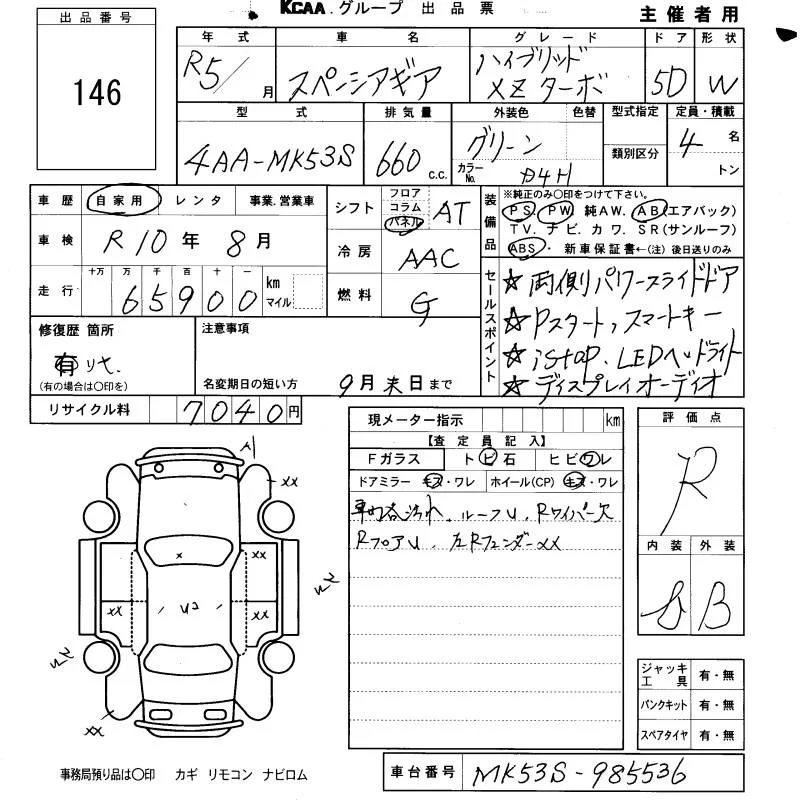 KCAA.グループ 出品票
主催者用
出品番号
146
年式 車名 グレード ドア 形状
R5/ 月 スペーシアギア ハイブリッド XZターボ 5D W
型式 排気量 外装色 色替 型式指定 定員・積載
4AA-MK53S 660 c.c. グリーン 類別区分 4 名
カラーNo. トン
車歴 自家用 レンタ 事業.営業車
車検 R10年 8月
走行 十万 万 千 百 十 一 km マイル
65900
シフト フロア コラム パネル AT
冷房 AAC
燃料 G
装備品 ※純正のみ○印をつけて下さい。
PS PW 純AW. AB(エアバック)
TV. ナビ. カワ. SR(サンルーフ)
ABS・ 新車保証書←(注) 後日送りのみ
セールスポイント
☆両側パワースライドドア
☆Pスタート,スマートキー
☆iStop.LEDヘッドライト
☆ディスプレイオーディオ
修復歴 箇所
有
(有の場合は○印を)
注意事項
名変期日の短い方 9月末日まで
リサイクル料 7040円
現メーター指示 km
【査定員記入】
Fガラス トビ石 ヒビワレ
ドアミラー キズ・ワレ ホイール(CP) キズ・ワレ
車内各汚れ、ルーフU、Rワイパー欠
RフロアU、左Rフェンダーxx
評価点
R
内装 外装
B
ジャッキ工具 有・無
パンクキット 有・無
スペアタイヤ 有・無
A1
xx
x xx
xx U2 xx
xx
事務局預り品は○印 カギ リモコン ナビロム
車台番号 MK53S-985536